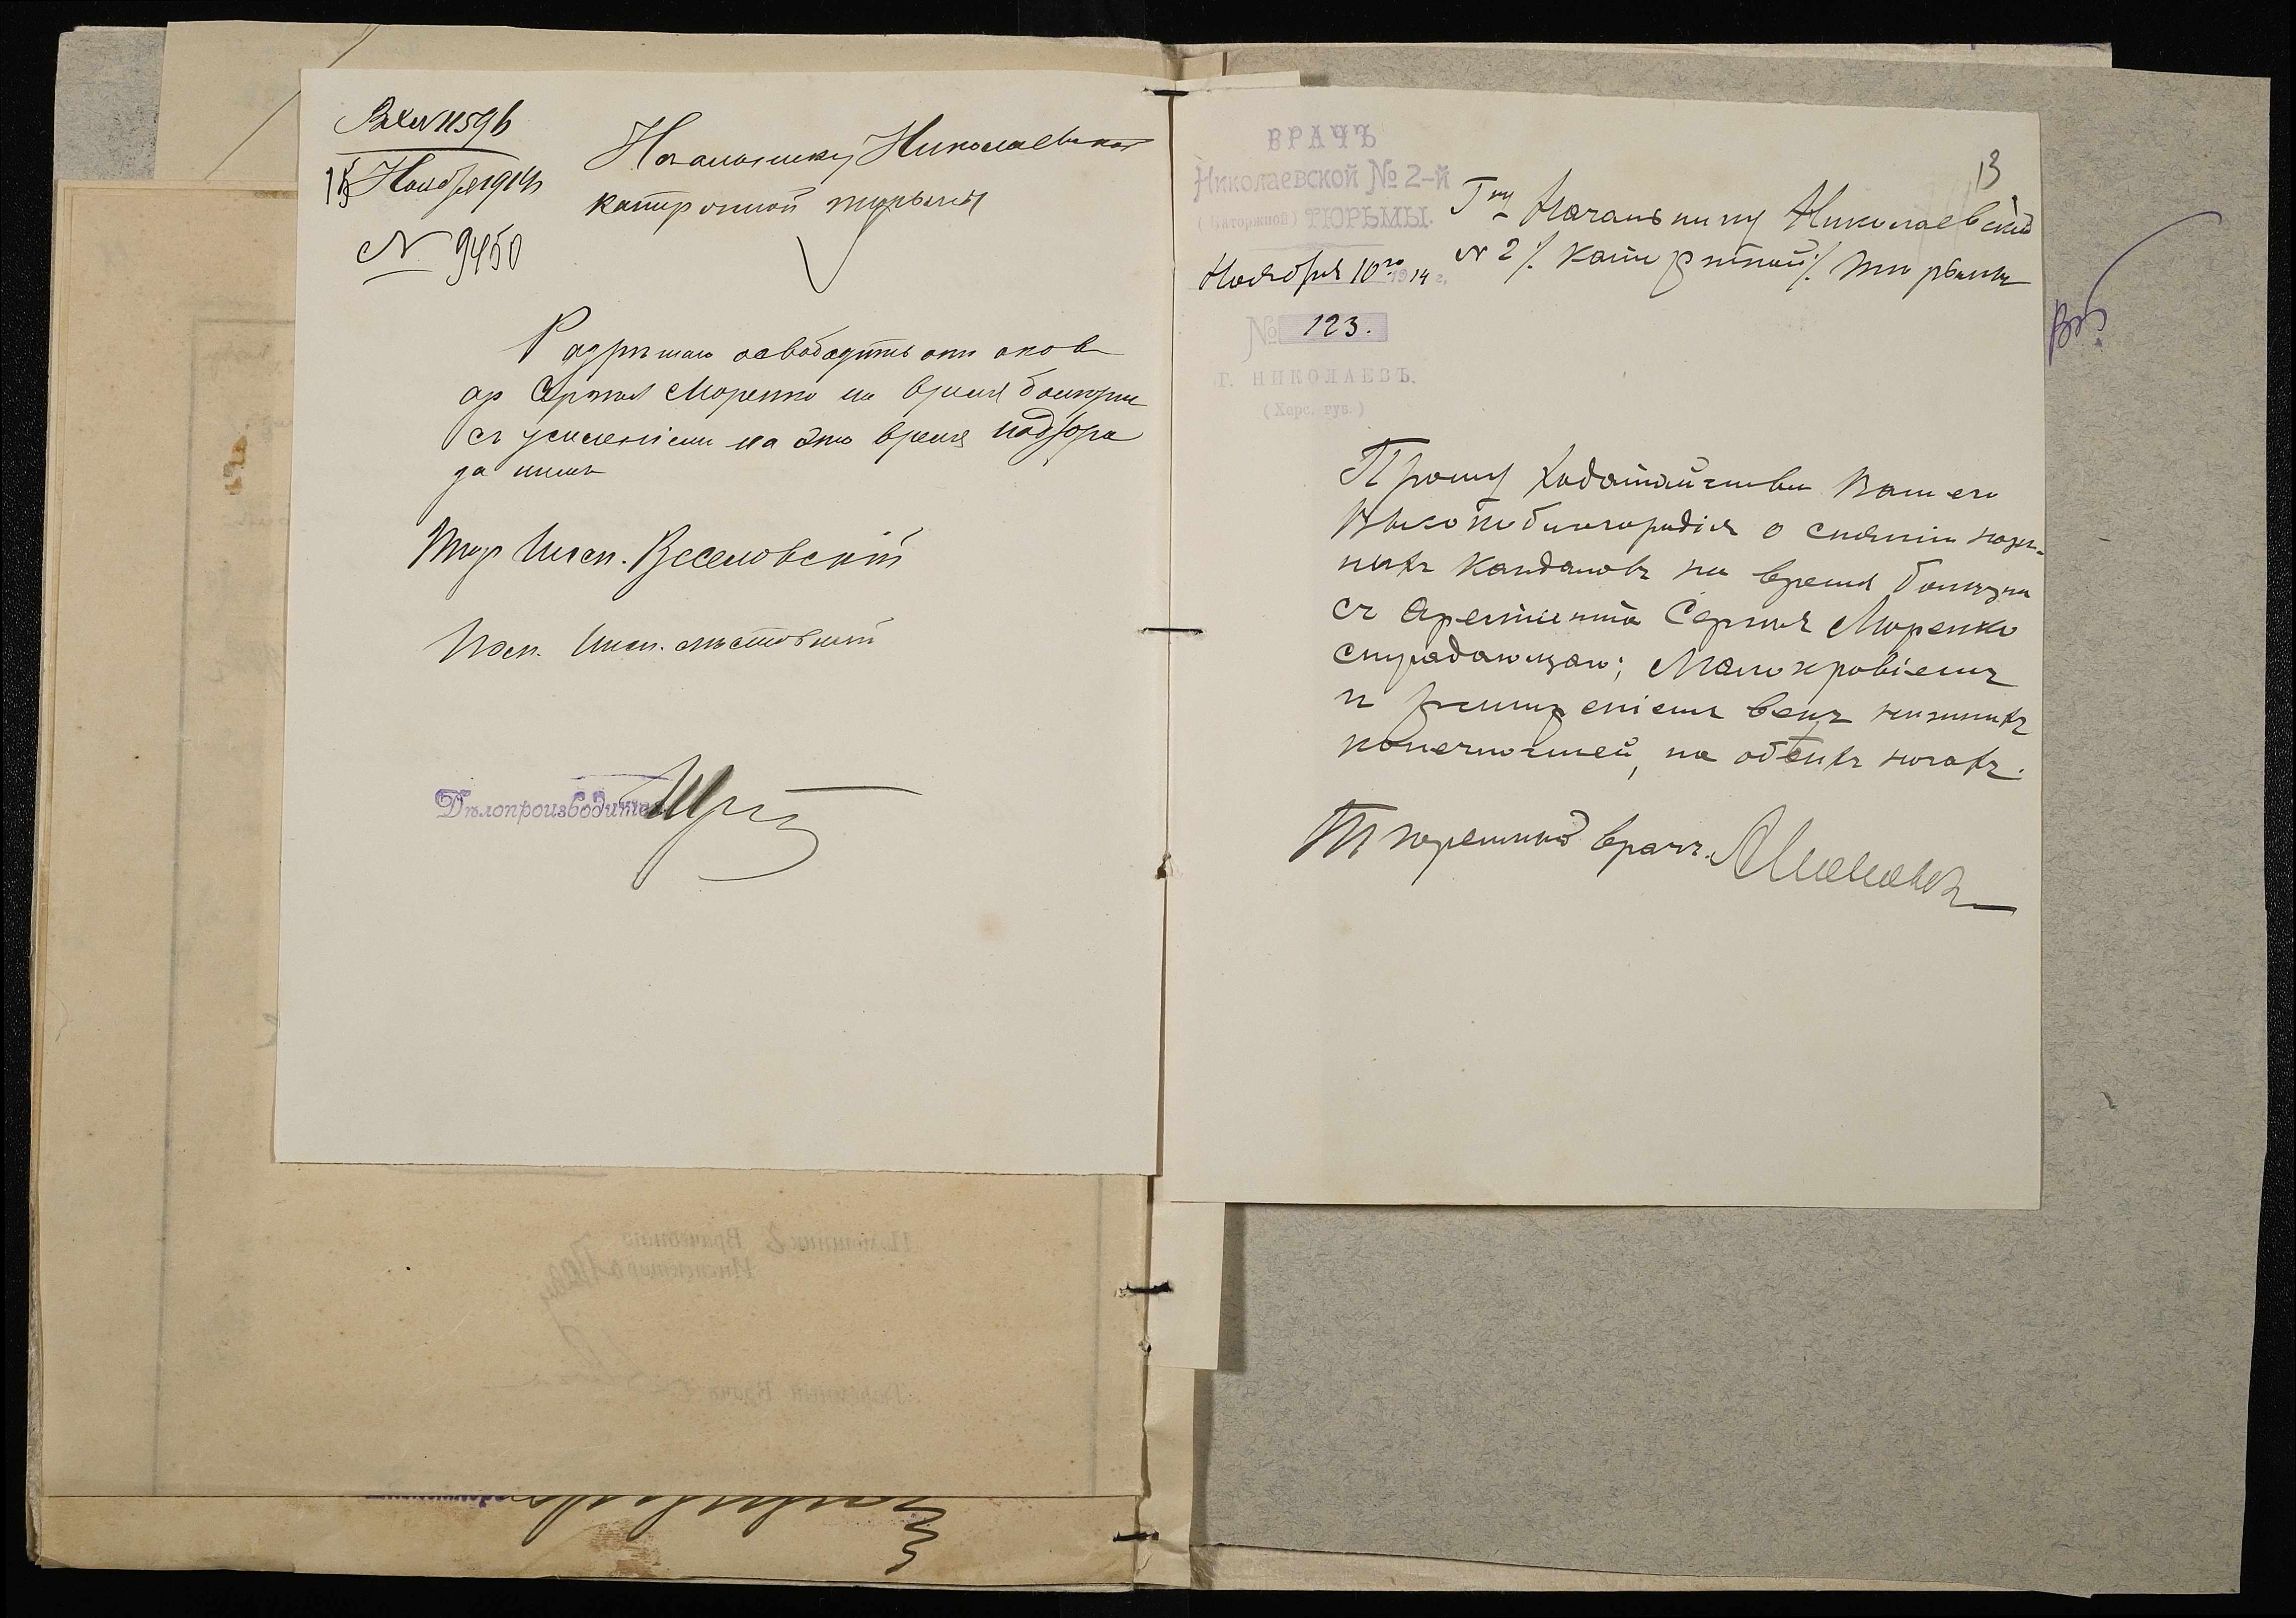 Вх № 11596
15 Ноября 1914
№ 9450
Начальнику Николаевской
каторжной тюрьмы
Разрѣшаю освободить отъ оковъ
ар Сергѣя Моренко на время болѣзни
съ усиленіемъ на это время надзора
за нимъ
Тюр Инсп. Веселовскій
Дѣлопроизводитель
13
ВРАЧЪ
Николаевской № 2-й
(Каторжной) ТЮРЬМЫ.
Ноября 10го 1914 г.
№ 123.
Г. НИКОЛАЕВЪ.
(Херс. губ.)
Гну Начальнику Николаевской
№ 2 /. Каторжной /. Тюрьмы
Прошу ходатайства Вашего
Высокоблагородія о снятіи нож-
ныхъ кандаловъ на время болѣзни
съ арестанта Сергѣя Моренко
страдающаго; Малокровіемъ
и расширеніемъ венъ нижнихъ
конечностей, на обеихъ ногахъ.
Тюремный врачъ.